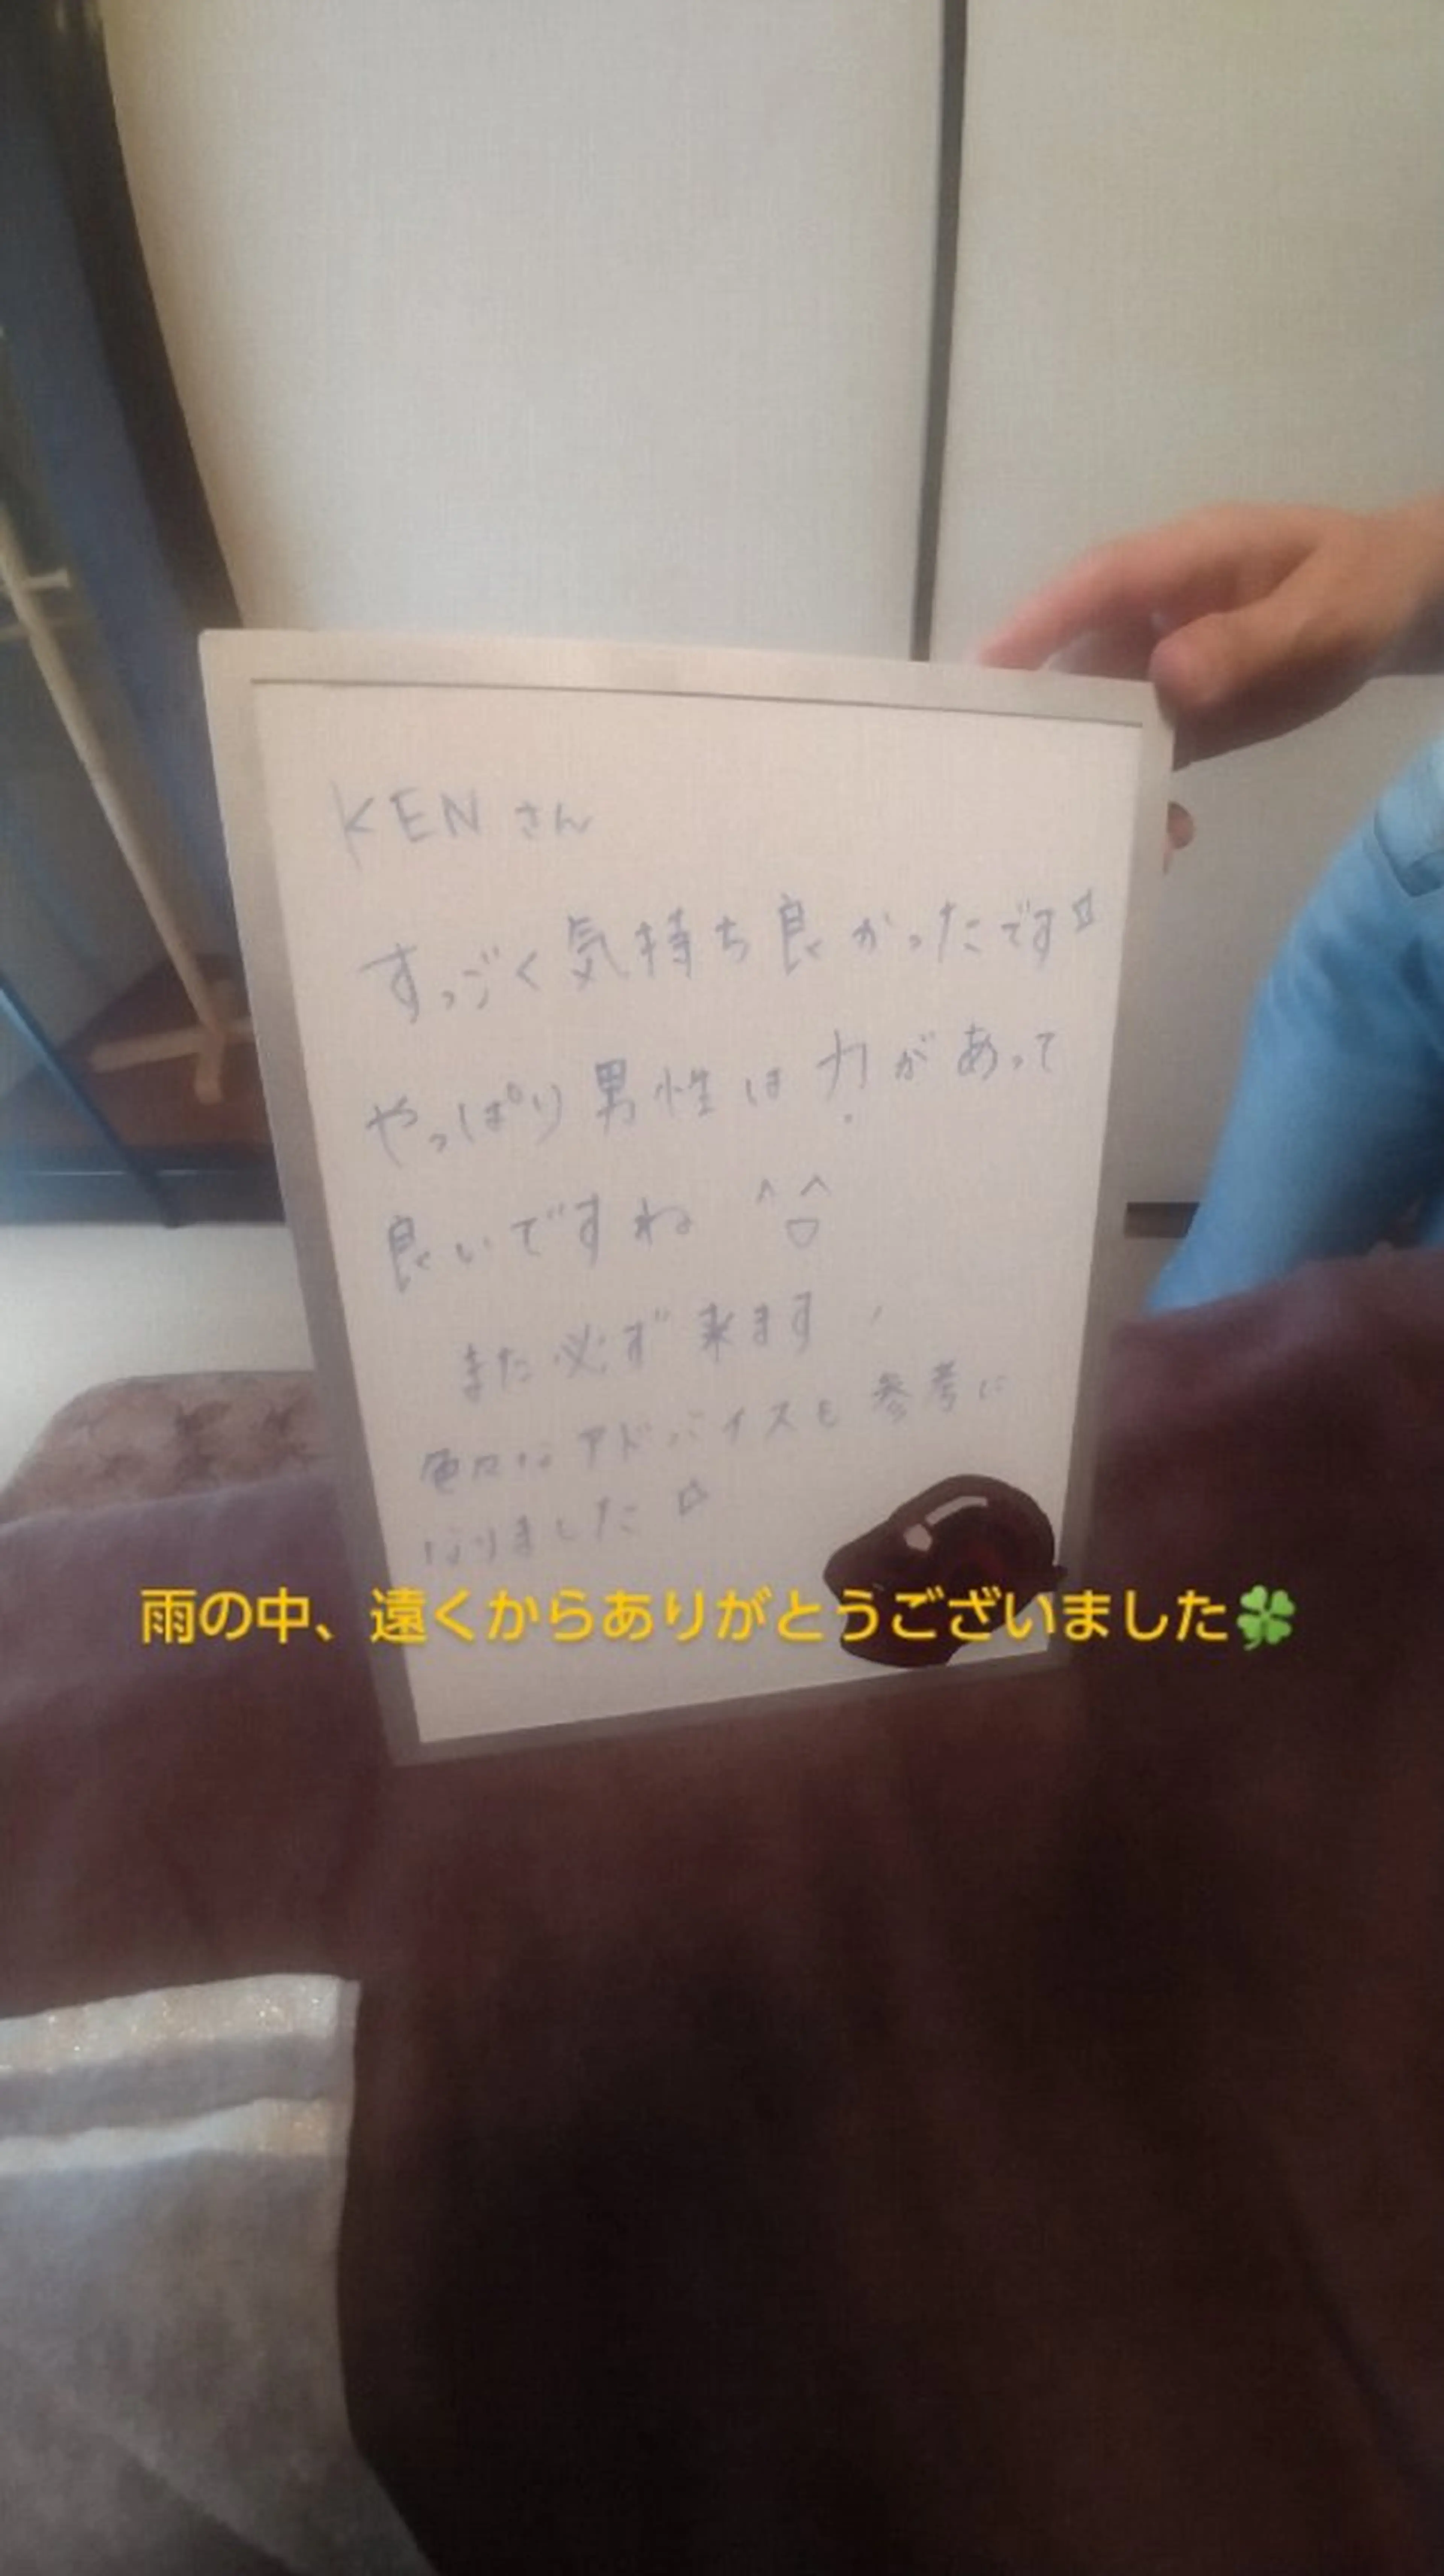 KENさん
すっごく気持ち良かったです☆
やっぱり男性は力があって
良いですね ^^
また必ず来ます！
色々なアドバイスも参考に
なりました☆
雨の中、遠くからありがとうございました🍀